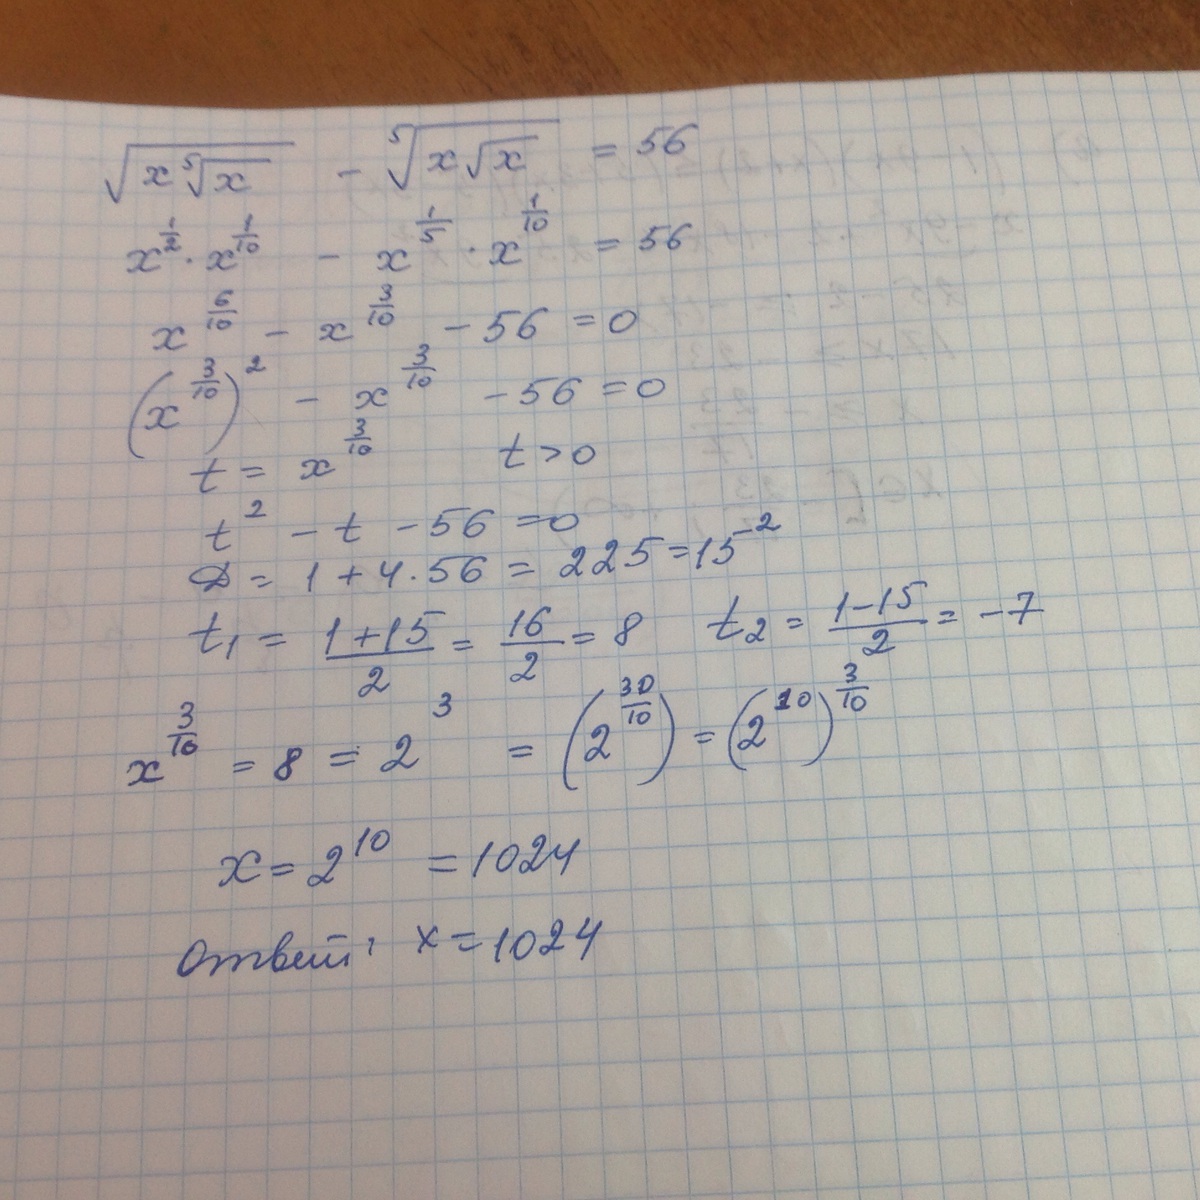 √(x ⁵√x) - ⁵√(x√x) = 56
x^(1/2) · x^(1/10) - x^(1/5) · x^(1/10) = 56
x^(6/10) - x^(3/10) - 56 = 0
(x^(3/10))^2 - x^(3/10) - 56 = 0
t = x^(3/10) t > 0
t^2 - t - 56 = 0
D = 1 + 4 · 56 = 225 = 15^2
t₁ = (1+15)/2 = 16/2 = 8 t₂ = (1-15)/2 = -7
x^(3/10) = 8 = 2^3 = (2^(30/10)) = (2^10)^(3/10)
x = 2^10 = 1024
Ответ: x = 1024